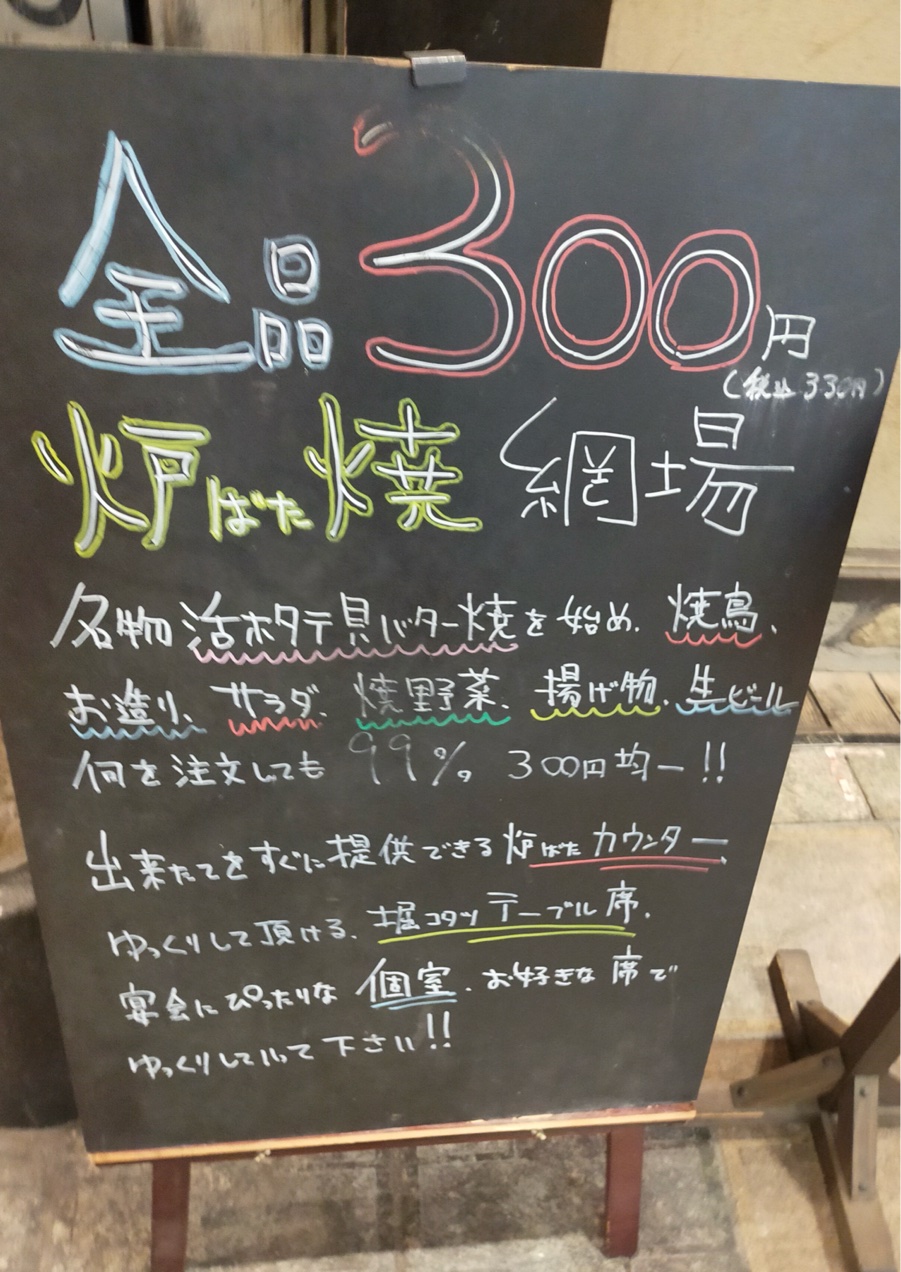 全品300円
(税込330円)
炉ばた焼 網場
名物 活ホタテ貝バター焼を始め、焼鳥、
お造り、サラダ、焼野菜、揚げ物、生ビール
何を注文しても 99%。300円均一!!
出来たてをすぐに提供できる炉ばたカウンター、
ゆっくりして頂ける、堀コタツテーブル席、
宴会にぴったりな 個室、お好きな席で
ゆっくりしていって下さい!!